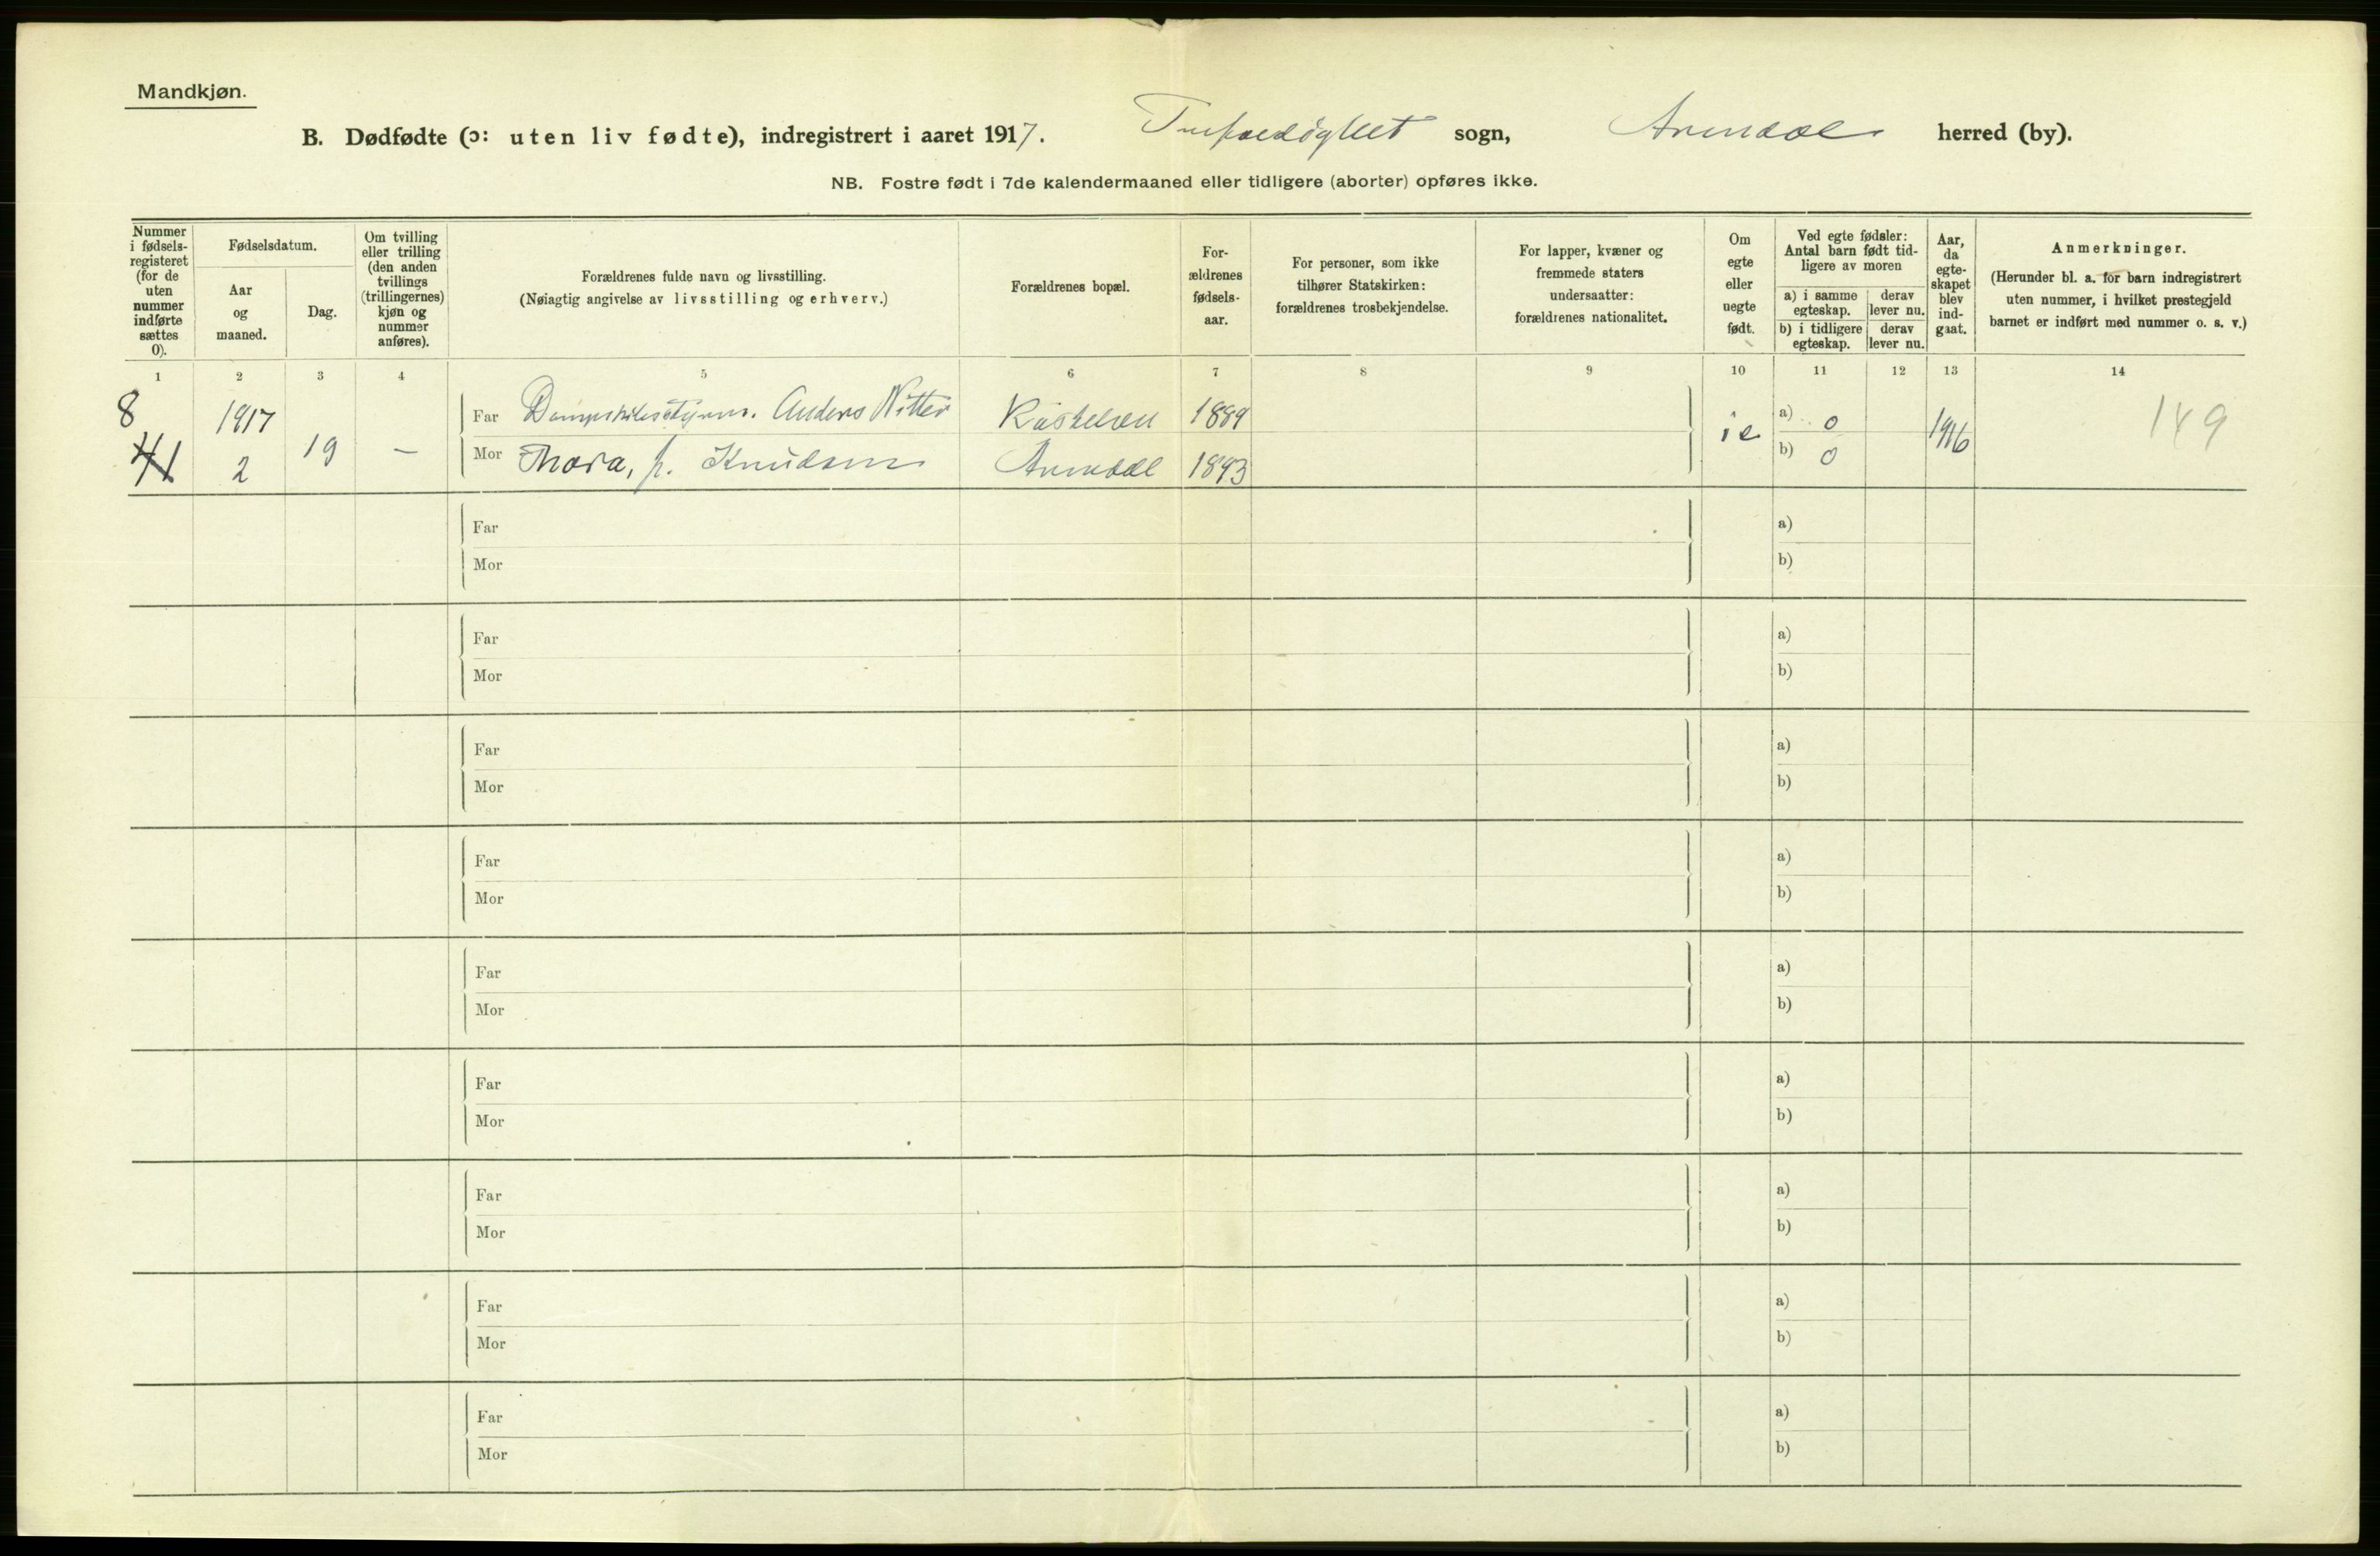 Mandkjøn.
B. Dødfødte (ɔ: uten liv fødte), indregistrert i aaret 1917. sogn, Arendal herred (by).
NB. Fostre født i 7de kalendermaaned eller tidligere (aborter) opføres ikke.
Nummer i fødsels-registeret (for de uten nummer indførte sættes 0).
Fødselsdatum.
Aar og maaned.
Dag.
Om tvilling eller trilling (den anden tvillings (trillingernes) kjøn og nummer anføres).
Forældrenes fulde navn og livsstilling.
(Nøiagtig angivelse av livsstilling og erhverv.)
Forældrenes bopæl.
For-ældrenes fødsels-aar.
For personer, som ikke tilhører Statskirken: forældrenes trosbekjendelse.
For lapper, kvæner og fremmede staters undersaatter: forældrenes nationalitet.
Om egte eller uegte født.
Ved egte fødsler: Antal barn født tid-ligere av moren
a) i samme egteskap.
derav lever nu.
b) i tidligere egteskap.
derav lever nu.
Aar, da egte-skapet blev ind-gaat.
Anmerkninger.
(Herunder bl. a. for barn indregistrert uten nummer, i hvilket prestegjeld barnet er indført med nummer o. s. v.)
1 2 3 4 5 6 7 8 9 10 11 12 13 14
8 1917 Far Anders Witter 1889 a) 0
41 2 19 — Mor Thora, f. Knudsen Arendal 1893 ie b) 0 1916 149
Far a)
Mor b)
Far a)
Mor b)
Far a)
Mor b)
Far a)
Mor b)
Far a)
Mor b)
Far a)
Mor b)
Far a)
Mor b)
Far a)
Mor b)
Far a)
Mor b)